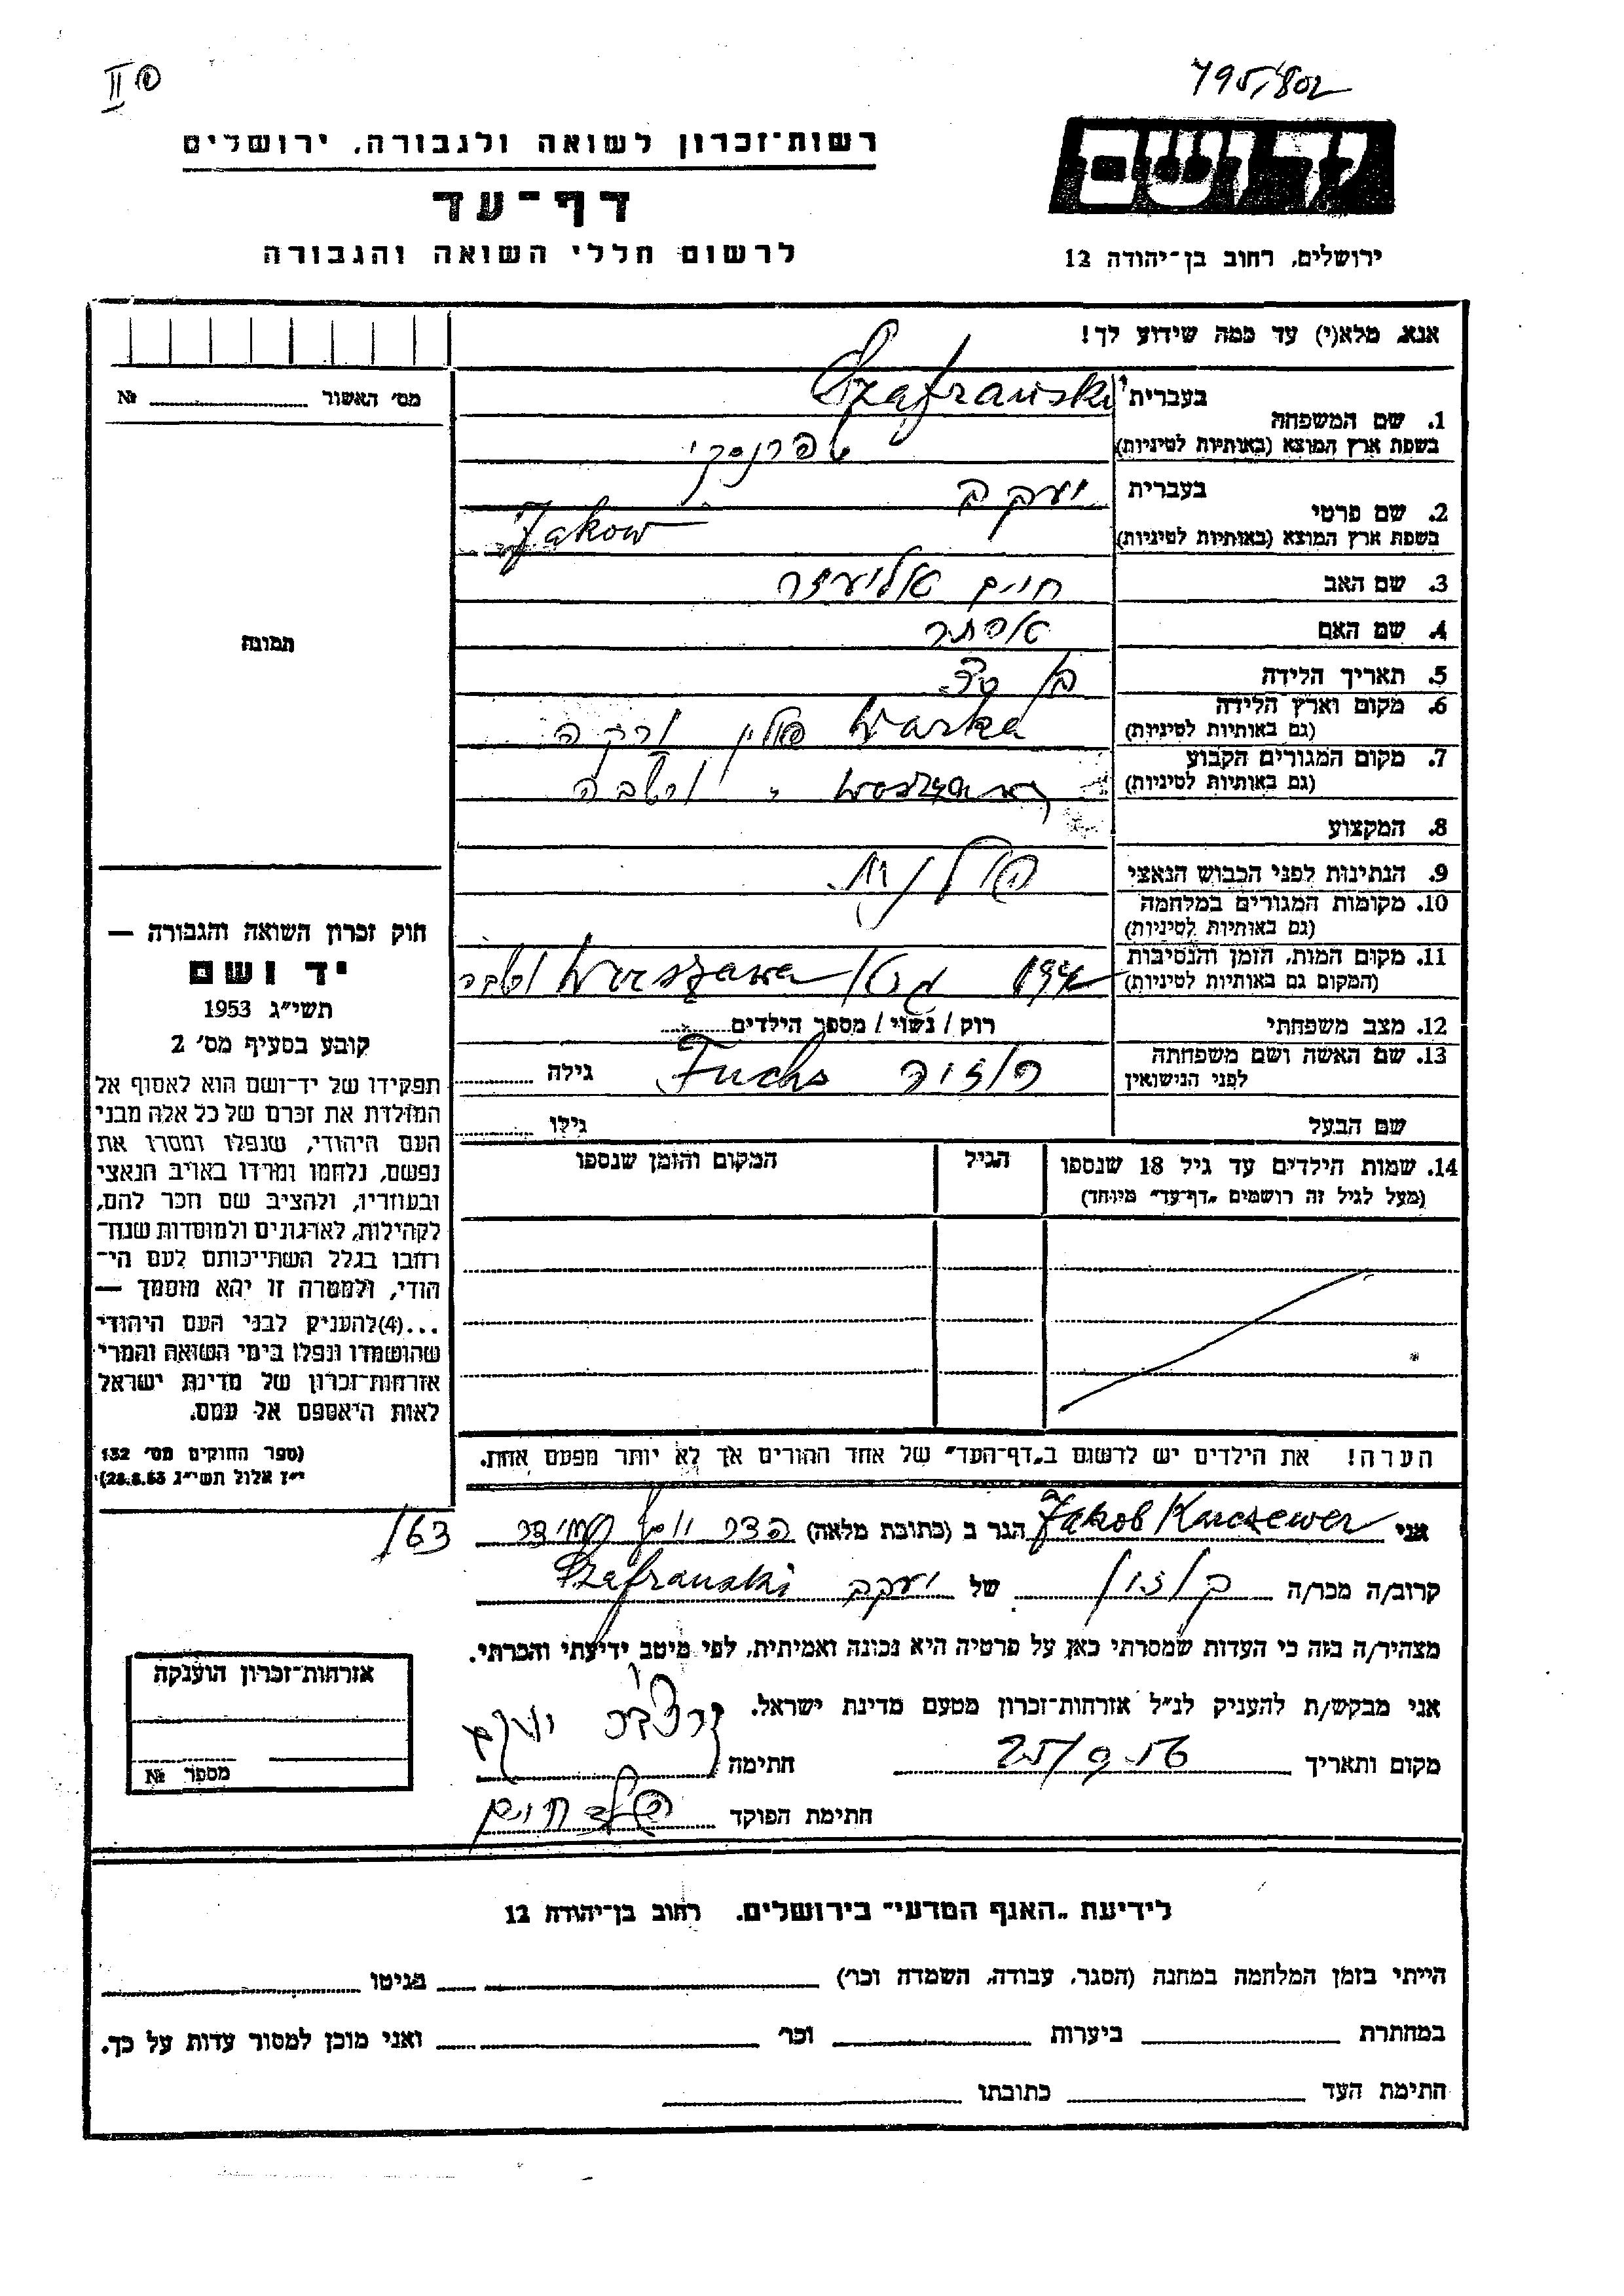 795/802
II
רשות־זכרון לשואה ולגבורה, ירושלים
דף־עד
לרשום חללי השואה והגבורה
ידושם
ירושלים, רחוב בן־יהודה 12
אנא, מלא(י) עד כמה שידוע לך!
מס׳ האשור № 
1. שם המשפחה בעברית Szafranski
בשפת ארץ המוצא (באותיות לטיניות) שפרנסקי
2. שם פרטי בעברית יעקב
בשפת ארץ המוצא (באותיות לטיניות) Jakow
3. שם האב חיים אליעזר
4. שם האם אסתר
5. תאריך הלידה בן
6. מקום וארץ הלידה (גם באותיות לטיניות) Warka פולין ורקה
7. מקום המגורים הקבוע (גם באותיות לטיניות) Woszawa ״ ורשבה
8. המקצוע
9. הנתינות לפני הכבוש הנאצי פולנית
10. מקומות המגורים במלחמה (גם באותיות לטיניות)
11. מקום המות, הזמן והנסיבות (המקום גם באותיות לטיניות) גטו Warszawa
12. מצב משפחתי רוק / נשוי / מספר הילדים
13. שם האשה ושם משפחתה לפני הנישואין Fuchs גילה
שם הבעל גילו
14. שמות הילדים עד גיל 18 שנספו הגיל המקום והזמן שנספו
(מעל לגיל זה רושמים „דף־עד״ מיוחד)
הערה! את הילדים יש לרשום ב„דף־העד״ של אחד ההורים אך לא יותר מפעם אחת.
תמונה
חוק זכרון השואה והגבורה —
יד ושם
תשי״ג 1953
קובע בסעיף מס׳ 2
תפקידו של יד־ושם הוא לאסוף אל
המולדת את זכרם של כל אלה מבני
העם היהודי, שנפלו ומסרו את
נפשם, נלחמו ומרדו באויב הנאצי
ובעוזריו, ולהציב שם וזכר להם,
לקהילות, לארגונים ולמוסדות שנח־
רבו בגלל השתייכותם לעם הי־
הודי, ולמטרה זו יהא מוסמך —
...(4)להעניק לבני העם היהודי
שהושמדו ונפלו בימי השואה והמרי
אזרחות־זכרון של מדינת ישראל
לאות היאספם אל עמם.
(ספר החוקים מס׳ 132
י״ז אלול תשי״ג 28.8.53)
/163
אני Jakob Karczewer הגר ב (כתובת מלאה)
קרוב/ה מכר/ה בן דוד של יעקב Szafranski
מצהיר/ה בזה כי העדות שמסרתי כאן על פרטיה היא נכונה ואמיתית, לפי מיטב ידיעתי והכרתי.
אני מבקש/ת להעניק לנ״ל אזרחות־זכרון מטעם מדינת ישראל.
מקום ותאריך 25/9.56 חתימה יעקב
חתימת הפוקד חיים
אזרחות־זכרון הוענקה
מספר №
לידיעת „האגף המדעי״ בירושלים, רחוב בן־יהודה 12
הייתי בזמן המלחמה במחנה (הסגר, עבודה, השמדה וכו׳) בגיטו
במחתרת ביערות וכו׳ ואני מוכן למסור עדות על כך.
חתימת העד כתובתו